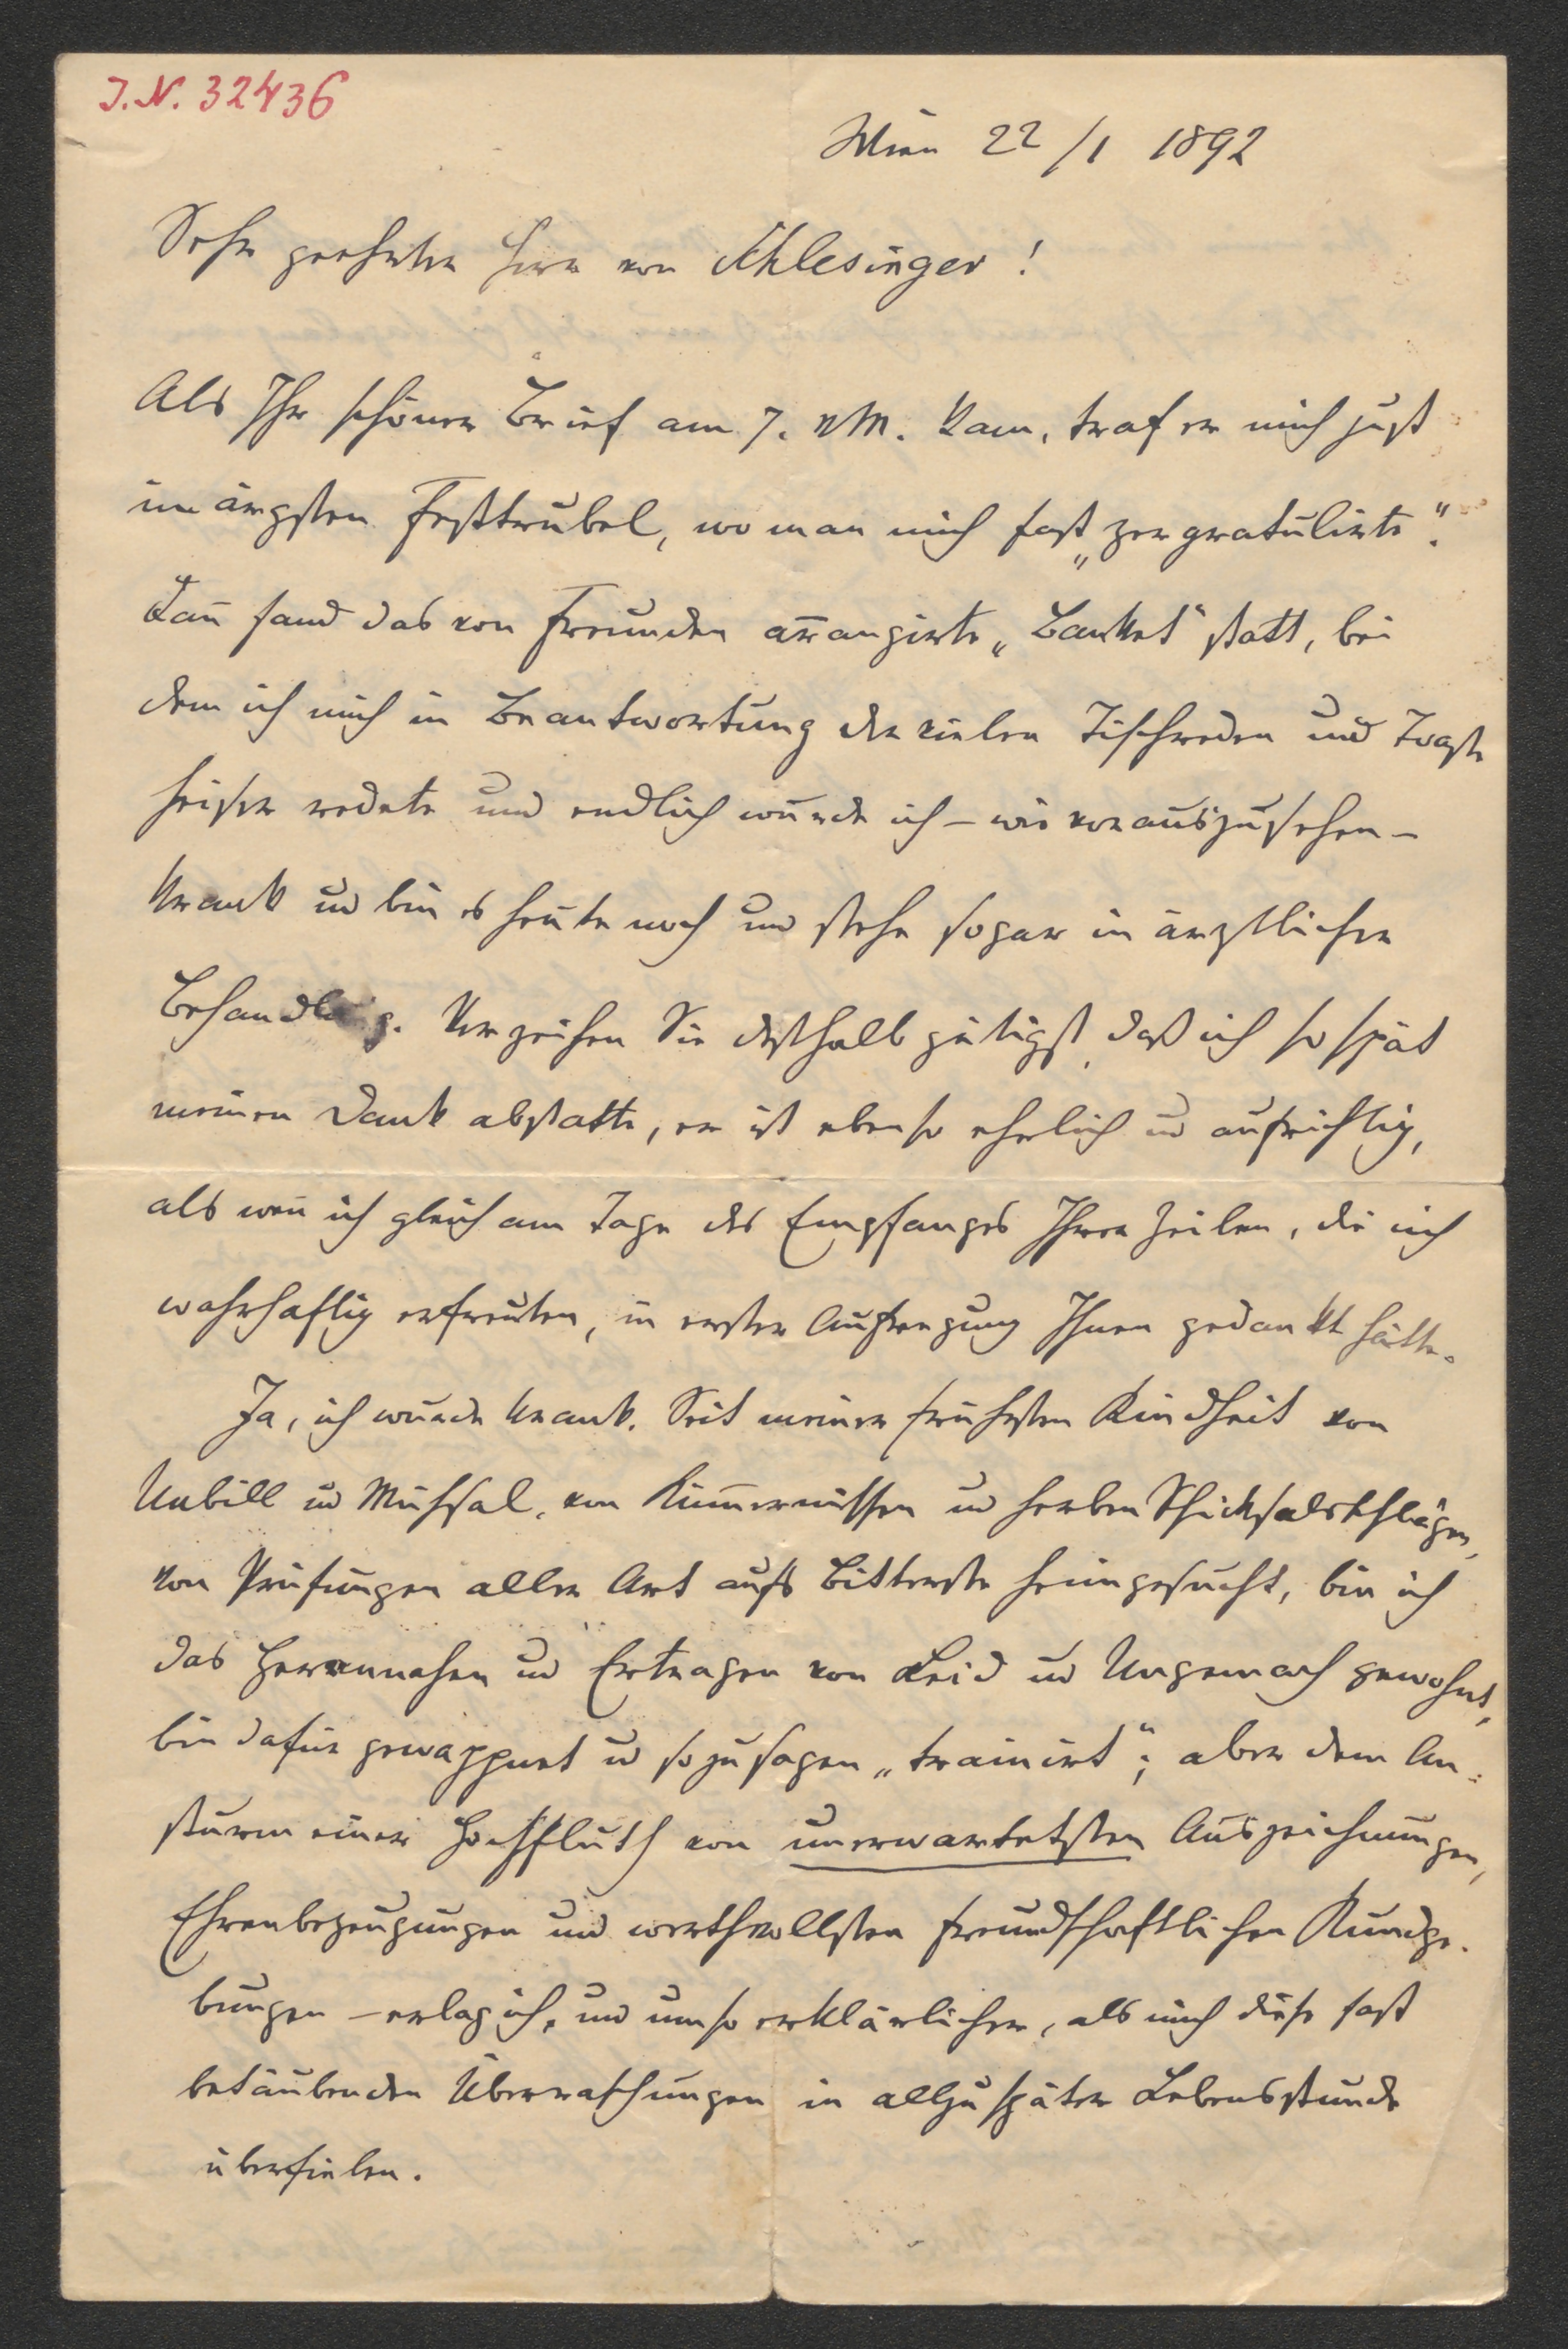 J. N. 32436
Wien 22/1 1892
Sehr geehrter Herr von Schlesinger!
Als Ihr schöner Brief am 7. v M. kam, traf er mich just
im ärgsten Festtrubel, wo man mich fast „zergratulirte“.
Dan̄ fand das von Freunden ar̄angirte „Banket“ statt, bei
dem ich mich in Beantwortung der vielen Tischreden und Toaste
heiser redete und endlich wurde ich – wie vorauszusehen –
krank und bin es heute noch und stehe sogar in ärztlicher
Behandlung. Verzeihen Sie deshalb gütigst, daß ich so spät
meinen Dank abstatte, er ist ebenso ehrlich und aufrichtig,
als wen̄ ich gleich am Tage des Empfanges Ihrer Zeilen, die mich
wahrhaftig erfreuten, in erster Aufregung Ihnen gedankt hätte.
Ja, ich wurde krank. Seit meiner frühesten Kindheit von
Unbill und Mühsal, von Küm̄ernissen und herben Schicksalsschlägen,
von Prüfungen aller Art aufs Bitterste heimgesucht, bin ich
das Herannahen und Ertragen von Leid und Ungemach gewohnt,
bin dafür gewappnet und sozusagen „trainirt“; aber dem An-
sturm einer Hochfluth von unerwartetsten Auszeichnungen,
Ehrenbezeugungen und werthvollsten freundschaftlichen Kundge-
bungen – erlag ich, und umso erklärlicher, als mich diese fast
betäubenden Überraschungen in allzu später Lebensstunde
überfielen.